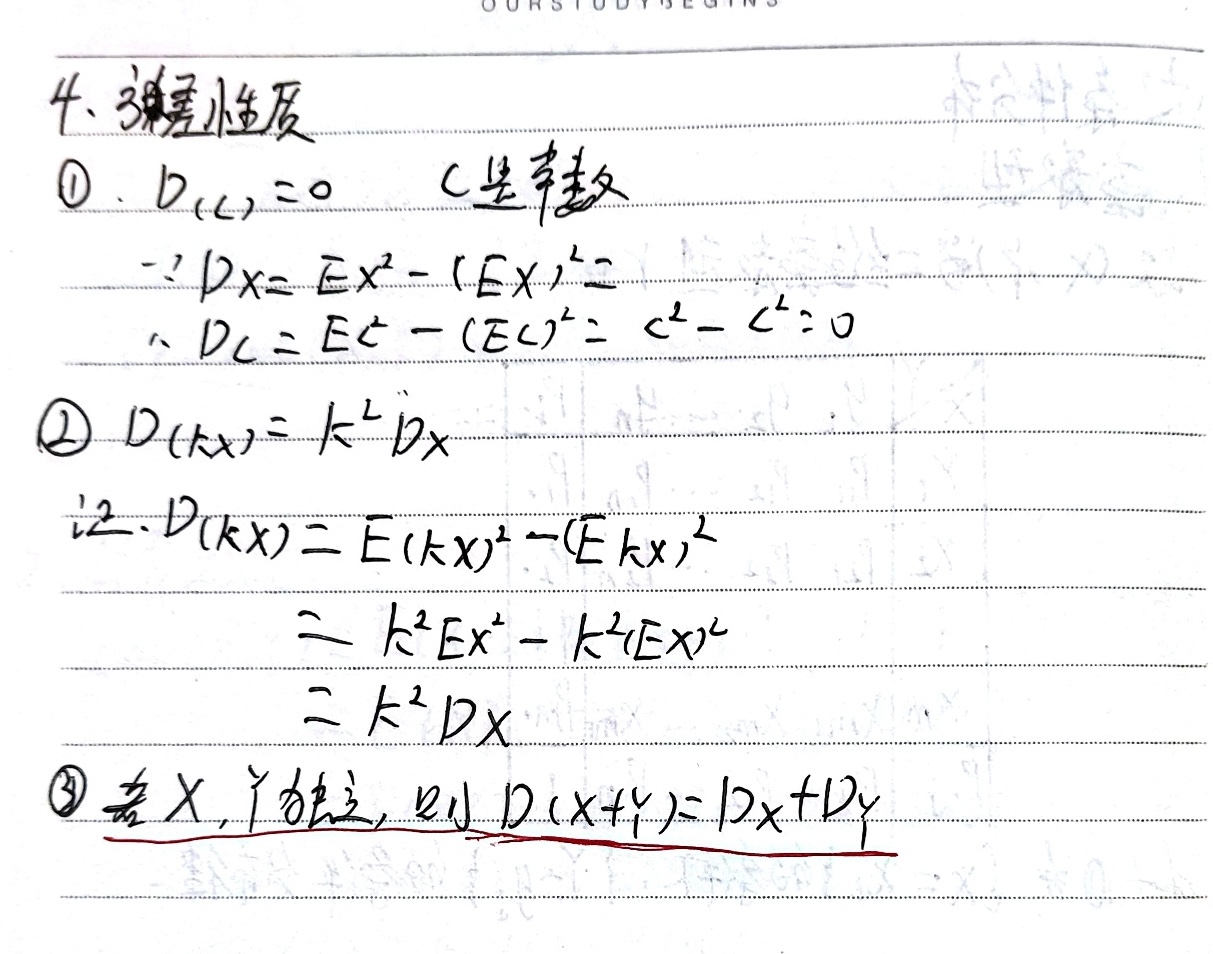 OURSTUDYBEGINS
4、方差性质
①. D(C)=0 C是常数
∵ DX = EX² - (EX)² =
∴ DC = EC² - (EC)² = C² - C² = 0
② D(kX) = k²DX
证. D(kX) = E(kX)² - (EkX)²
= k²EX² - k²(EX)²
= k²DX
③ 若X,Y独立, 则D(X+Y)=DX+DY